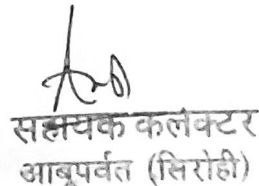 सहायक कलेक्टर
आबूपर्वत (सिरोही)